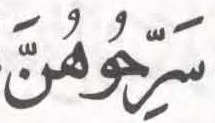 سَرِّحُوهُنَّ